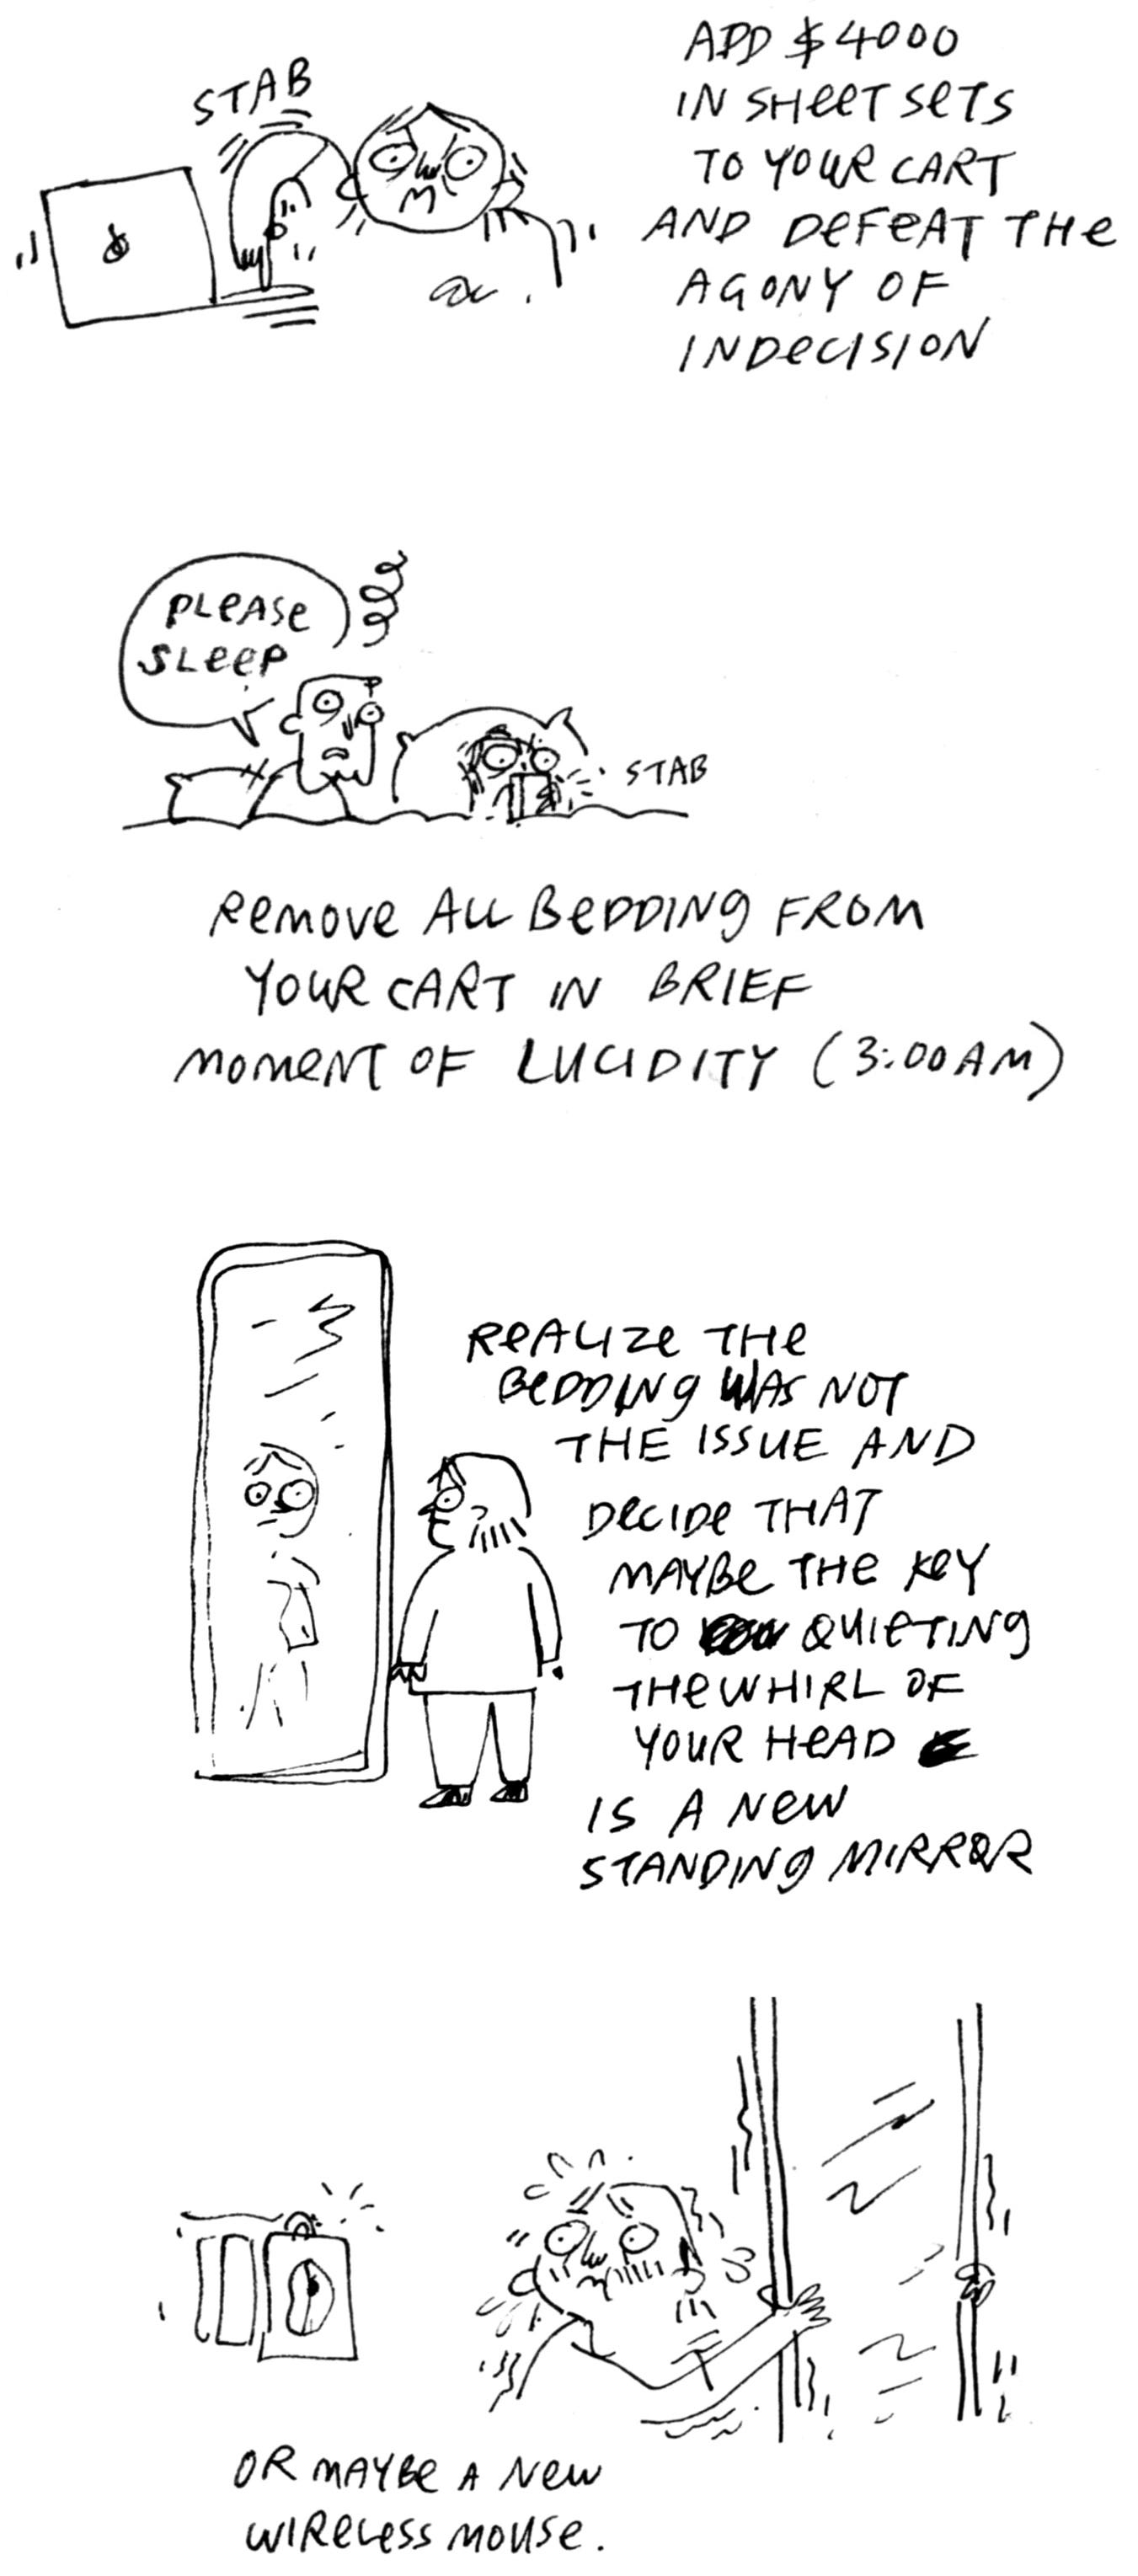 STAB
ADD $4000
IN SHEET SETS
TO YOUR CART
AND DEFEAT THE
AGONY OF
INDECISION
PLEASE
SLEEP
STAB
REMOVE ALL BEDDING FROM
YOUR CART IN BRIEF
MOMENT OF LUCIDITY (3:00 AM)
REALIZE THE
BEDDING WAS NOT
THE ISSUE AND
DECIDE THAT
MAYBE THE KEY
TO QUIETING
THE WHIRL OF
YOUR HEAD
IS A NEW
STANDING MIRROR
OR MAYBE A NEW
WIRELESS MOUSE.